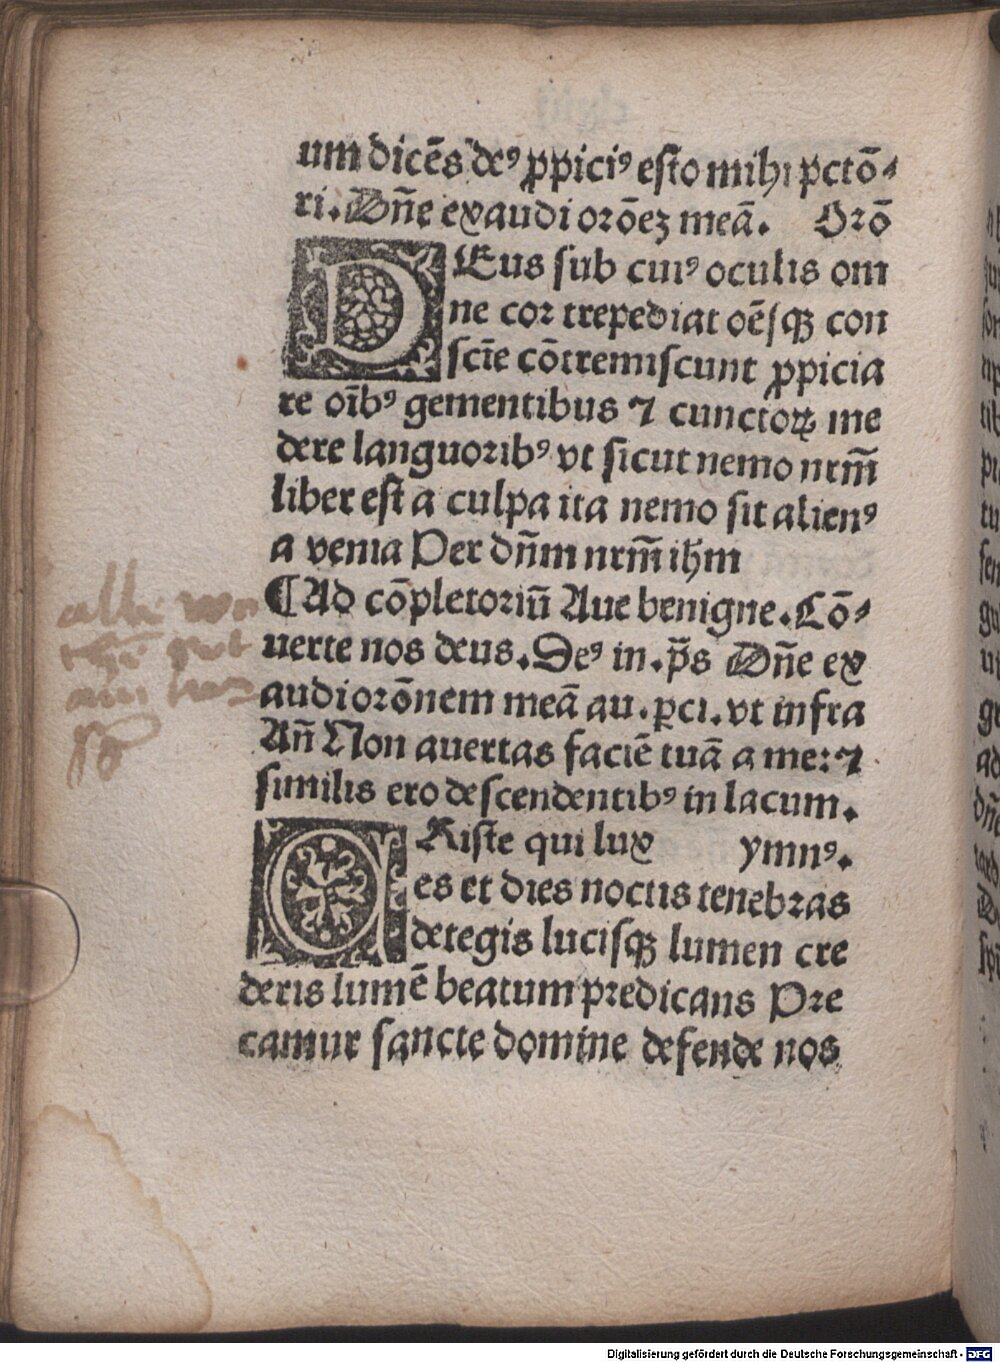 um dicēs deꝰ ꝓpiciꝰ esto mihi pctō⸗
ri. Dñe exaudi orōez meā. Orō
DEus sub cuiꝰ oculis om
ne cor trepediat oēſqꝫ con
scīe cōtremiscunt ꝓpicia
re oībꝰ gementibus ⁊ cunctoꝝ me
dere languoribꝰ vt sicut nemo nrm̄
liber est a culpa ita nemo sit alienꝰ
a venia Per dn̄m nrm̄ ihm
¶ Ad cōpletoriū Aue benigne. Cō⸗
uerte nos deus. Deꝰ in. p̄s Dñe ex
audi orōnem meā au. ꝑci. vt infra
An̄ Non auertas faciē tuā a me: ⁊
similis ero descendentibꝰ in lacum.
CRiste qui lux ymnꝰ.
es et dies noctis tenebras
detegis lucisqꝫ lumen cre
deris lumē beatum predicans Pre
camur sancte domine defende nos
Digitalisierung gefördert durch die Deutsche Forschungsgemeinschaft - DFG